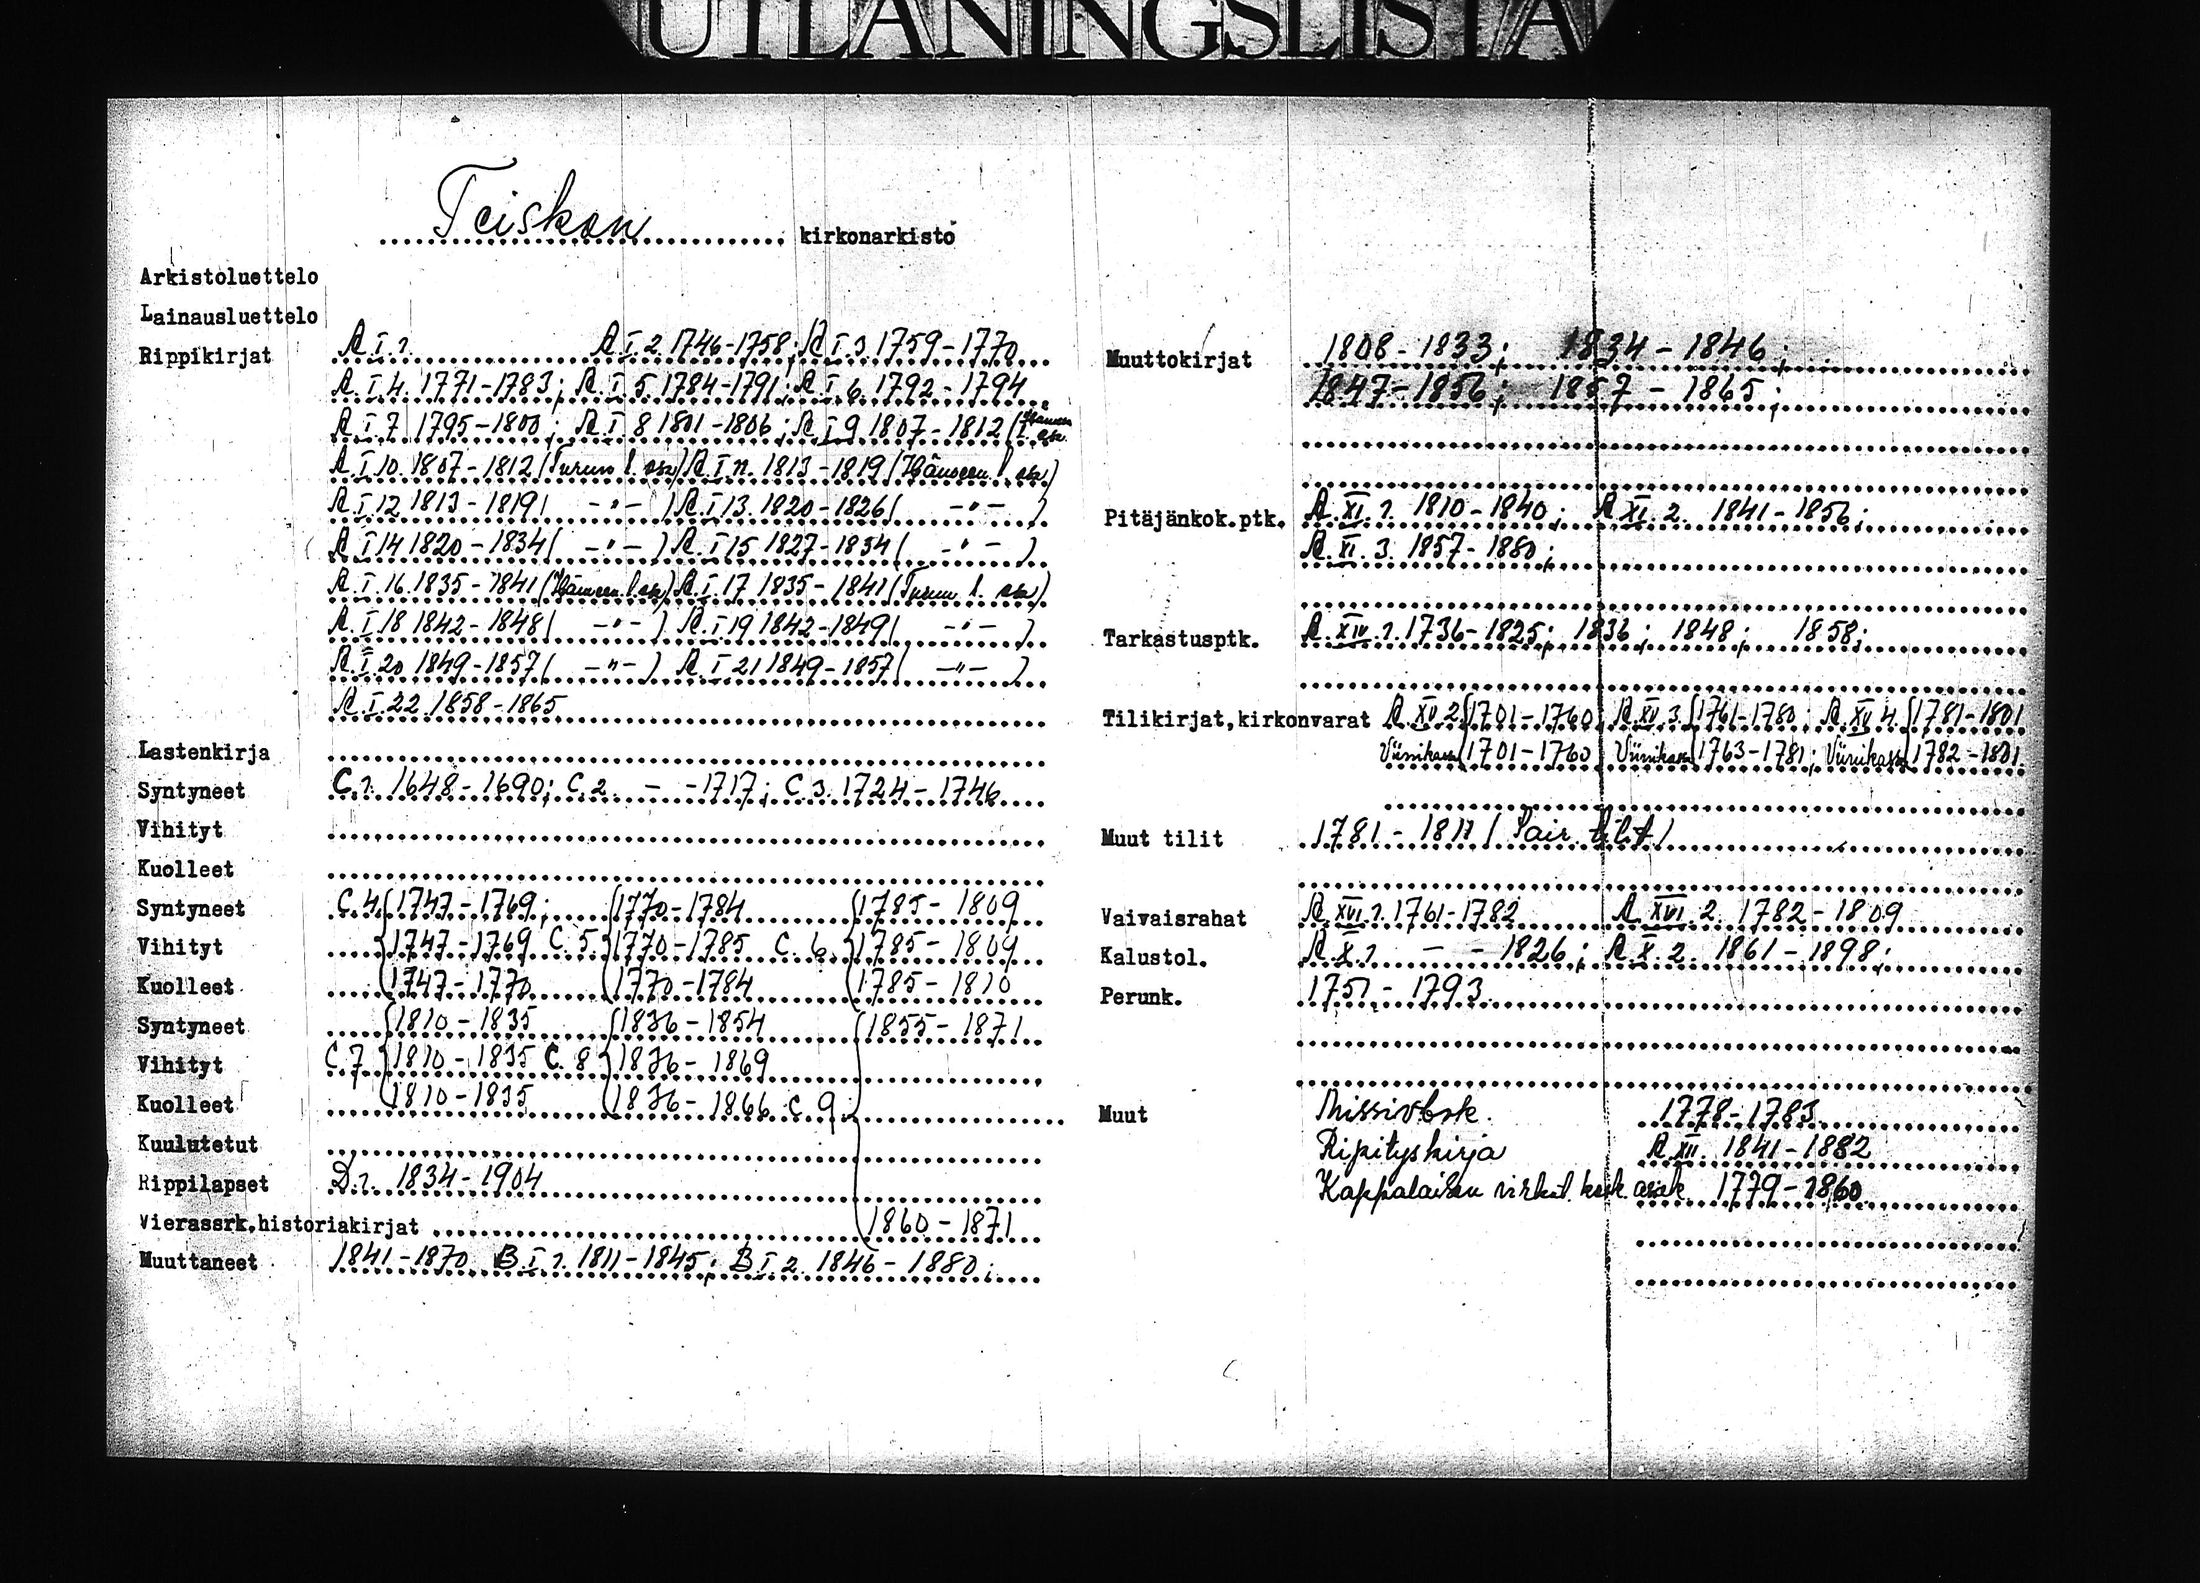 UTLÅNINGSLISTA
Teiskon kirkonarkisto
Arkistoluettelo
Lainausluettelo
Rippikirjat A I.1. A I.2. 1746-1758; A I.3 1759-1770
A.I.4. 1771-1783; A.I.5 1784-1791; A I 6. 1792-1794
A.I 7 1795-1800; A.I 8 1801-1806; A I 9 1807-1812 (Hämeen l. osa
A.I 10. 1807-1812 (Turun l. osa) A.I 11. 1813-1819 (Hämeen l. osa)
A.I 12 1813-1819 ( -"- ) A.I 13. 1820-1826 ( -"- )
A I 14 1820-1834 ( -"- ) A.I 15 1827-1834 ( -"- )
A.I.16. 1835-1841 (Hämeen l. osa) A.I.17 1835-1841 (Turun l. osa)
A.I 18 1842-1848 ( -"- ) A.I 19 1842-1849 ( -"- )
A.I.20 1849-1857 ( -"- ) A.I.21 1849-1857 ( -"- )
A.I.22. 1858-1865
Lastenkirja
Syntyneet C.1. 1648-1690; C.2. - -1717; C.3. 1724-1746
Vihityt
Kuolleet
Syntyneet C.4 1747-1769; 1770-1784 1785-1809
Vihityt 1747-1769 C.5. 1770-1785 C.6. 1785-1809
Kuolleet 1747-1770 1770-1784 1785-1810
Syntyneet 1810-1835 1836-1854 1855-1871
Vihityt C.7 1810-1835 C.8 1836-1869
Kuolleet 1810-1835 1836-1866 C.9.
Kuulutetut
Rippilapset D.1. 1834-1904
Vierassrk.historiakirjat 1860-1871
Muuttaneet 1841-1870 B I.1. 1811-1845; B I.2. 1846-1880;
Muuttokirjat 1808-1833; 1834-1846;
1847-1856; 1857-1865;
Pitäjänkok.ptk. A.XI.1. 1810-1840; A XI.2. 1841-1856;
A.XI.3. 1857-1880;
Tarkastusptk. A.XIV.1. 1736-1825; 1836; 1848; 1858;
Tilikirjat,kirkonvarat A.XV.2. 1701-1760 A.XV.3. 1761-1780; A.XV 4. 1781-1801
Viinikassa 1701-1760 Viinikassa 1763-1781; Viinikassa 1782-1801.
Muut tilit 1781-1811 ( tilit)
Vaivaisrahat A.XVI.1. 1761-1782 A.XVI.2. 1782-1809
Kalustol. A.X.1 - - 1826; A.X.2. 1861-1898;
Perunk. 1751-1793
Muut Missivbok. 1778-1783
Ripityskirja A.XII. 1841-1882
Kappalaisen virkat. kosk. asiak. 1779-1860